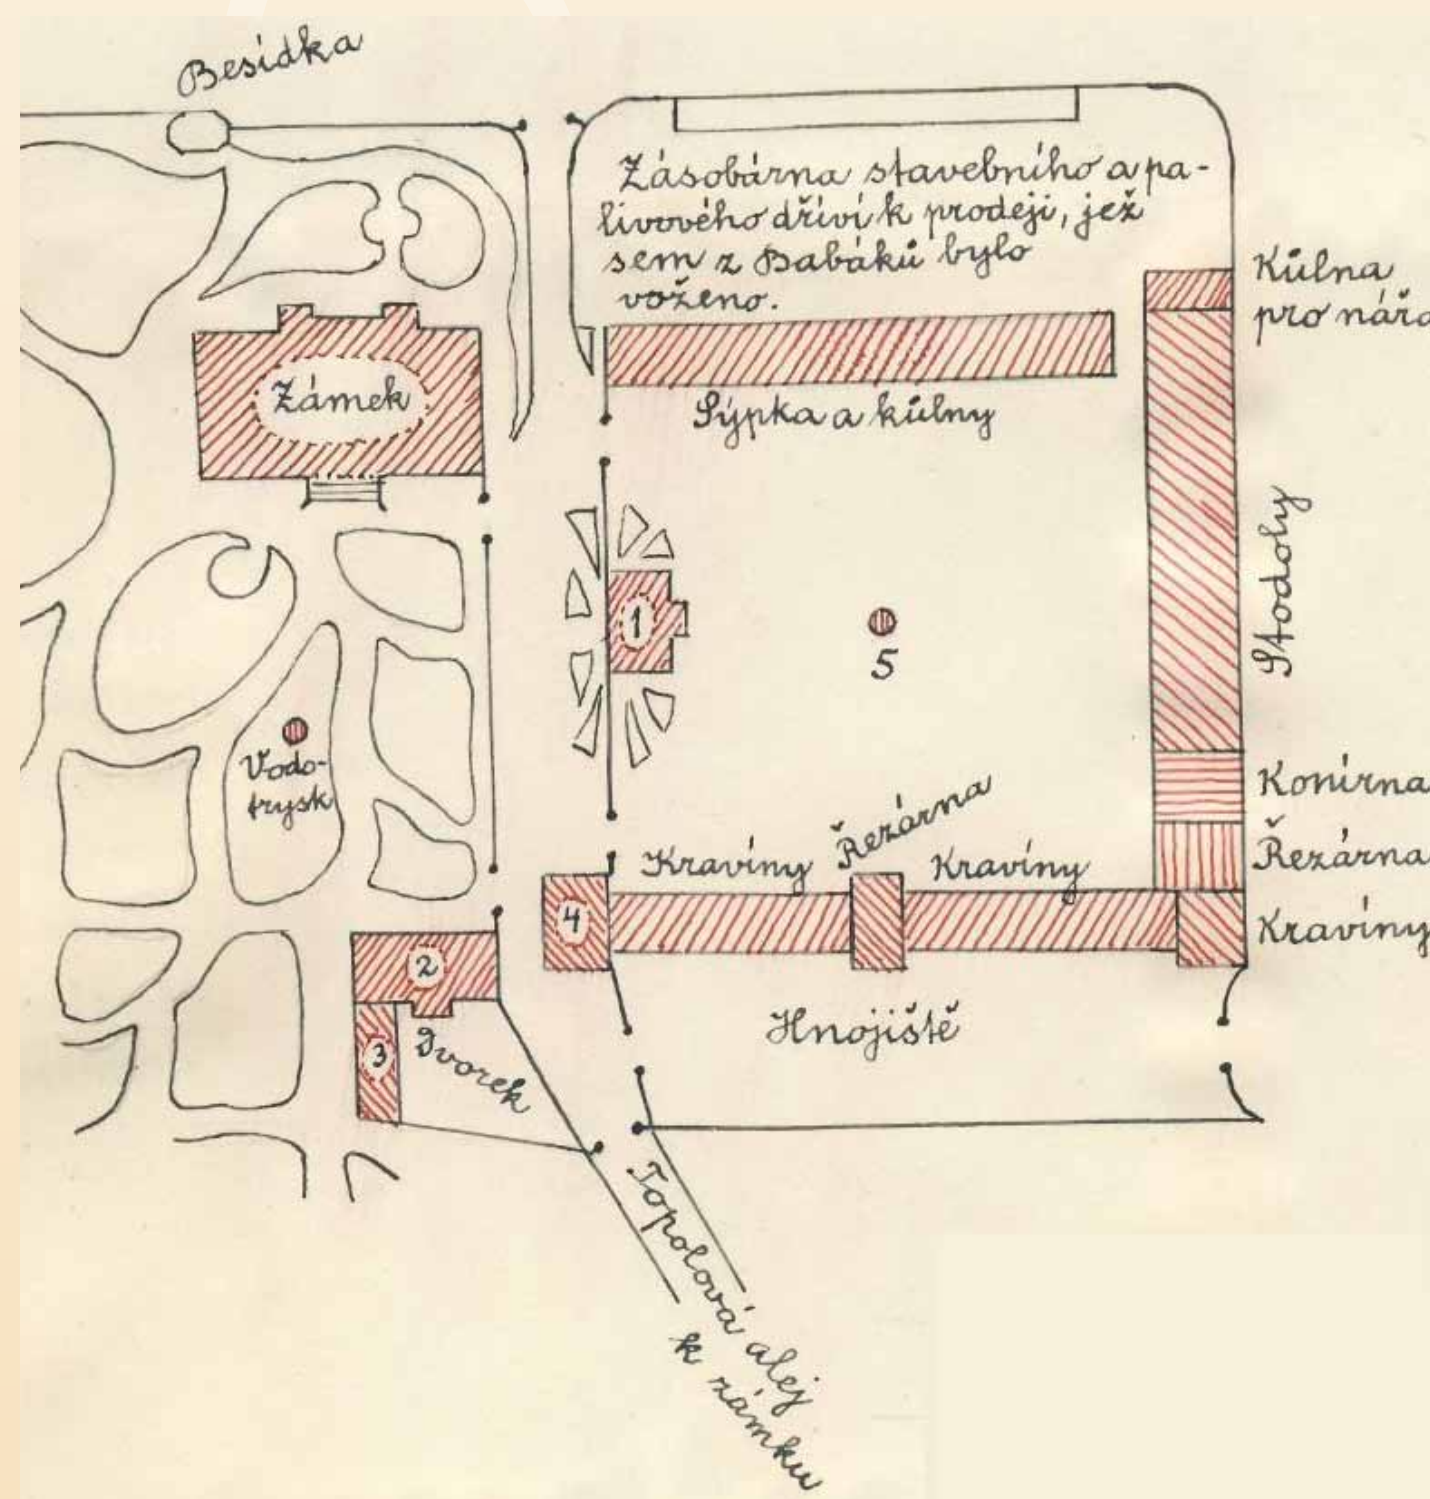 Besídka
Zásobárna stavebního a pa-
livového dříví k prodeji, jež
sem z Babáků bylo
voženo.
Kůlna
pro nářa
Zámek
Sýpka a kůlny
Stodoly
1
5
Vodo-
trysk
Konírna
Řezárna
Kravíny
Řezárna
Kravíny
Kravíny
4
2
3
Dvorek
Hnojiště
Topolová alej
k zámku